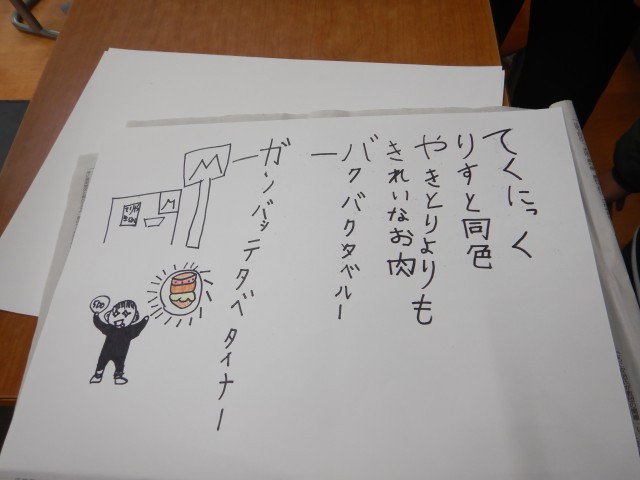 てくにっく
りすと同色
やきとりよりも
きれいなお肉
バクバクタベルー
ー
ガンバッテタベタイナー
ー
M
M
500